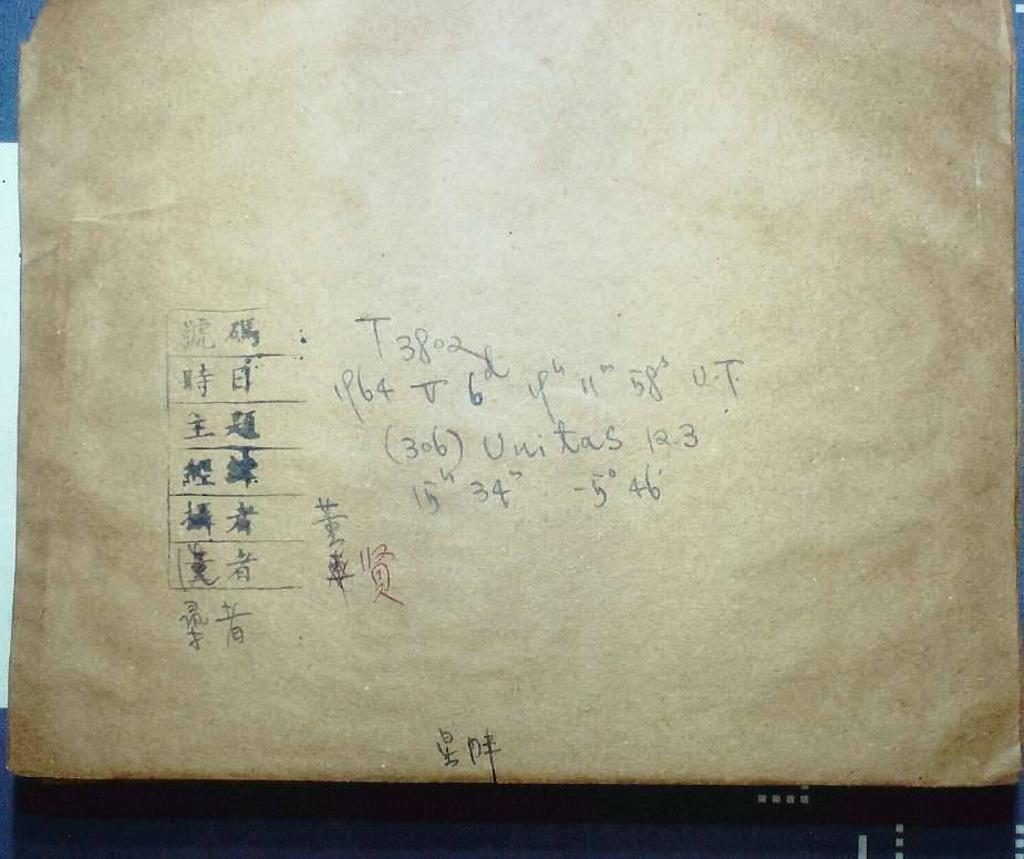 號碼 T 3802
時日 1964 V 6ᵈ 19ʰ 11ᵐ 58ˢ U.T.
主題 (306) Unitas 12.3
經緯 15ʰ 34ᵐ -5° 46'
攝者 董
者 賢
者
星